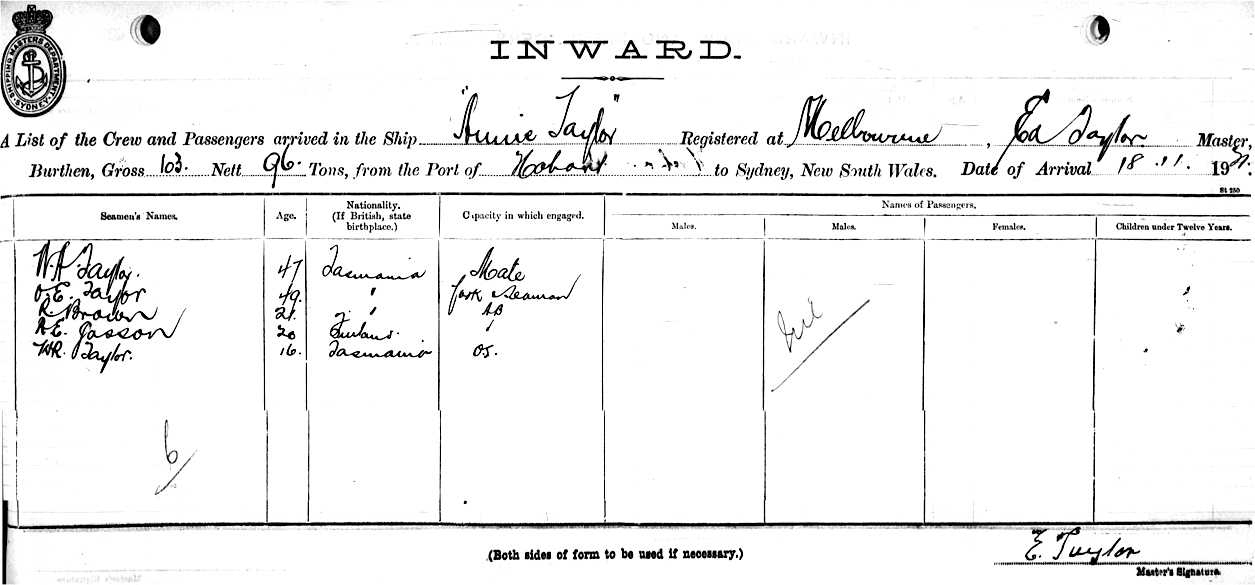 SHIPPING MASTERS DEPARTMENT SYDNEY
INWARD.
A List of the Crew and Passengers arrived in the Ship "Annie Taylor" Registered at Melbourne, Ed Taylor. Master,
Burthen, Gross 103. Nett 96. Tons, from the Port of Hobart to Sydney, New South Wales. Date of Arrival 18 . 11 . 19
St 250
Seamen's Names. Age. Nationality. (If British, state birthplace.) Capacity in which engaged. Names of Passengers.
Males. Males. Females. Children under Twelve Years.
W.A. Taylor. 47 Tasmania Mate
O.E. Taylor 49. " Seaman
R. Brown 21. " AB
A.E. Gasson 20 "
W.R. Taylor. 16. Tasmania OS.
nil
6
(Both sides of form to be used if necessary.)
E. Taylor
Master's Signature.